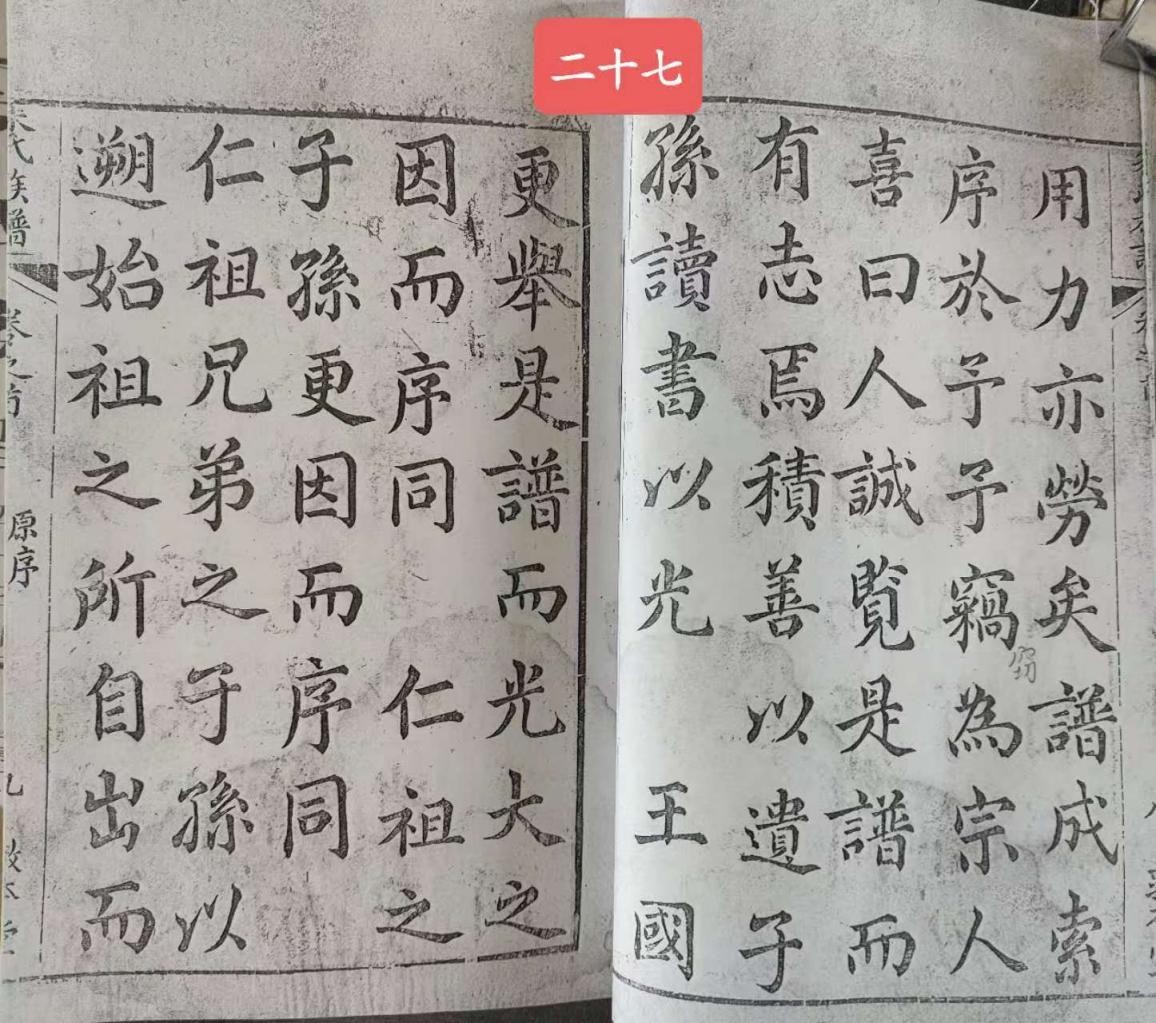 二十七
用力亦勞矣譜成索
序於予予竊為宗人
窃
喜曰人誠覧是譜而
有志焉積善以遺子
孫讀書以光 王國
更舉是譜而光大之
因而序同 仁祖之
子孫更因而序同
仁祖兄弟之子孫以
遡始祖之所自出而
氏族譜
原序